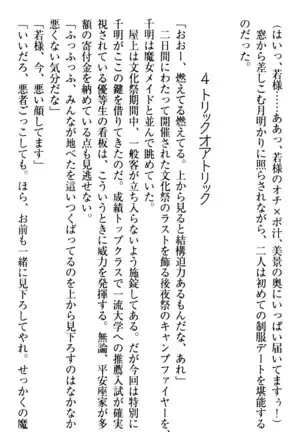 （はいっ、若様……ああっ、若様のオチ×ポ汁、美景の奥にいっぱい届いてますぅ！）
窓から差しこむ月明かりに照らされながら、二人は初めての制服デートを堪能する
のだった。
4 トリックオアトリック
「おおー、燃えてる燃えてる。上から見ると結構迫力あるもんだな、あれ」
二日間にわたって開催された文化祭のラストを飾る後夜祭のキャンプファイヤーを、
千明は魔女メイドと並んで眺めていた。
屋上は文化祭期間中、一般客が立ち入らないよう施錠してある。だが今回は特別に
千明がここの鍵を借りてきたのだ。成績トップクラスで一流大学への推薦入試が確実
視されている優等生の看板は、こういうときに威力を発揮する。無論、平安座家が多
額の寄付金を納めている点も見逃せない。
「ふっふっふ、みんなが地べたを這いつくばってるのを上から見下ろすのはなかなか
悪くない気分だな」
「若様、今、悪い顔してます」
「いいだろ、悪者ごっこしても。ほら、お前も一緒に見下ろしてやれ。せっかくの魔